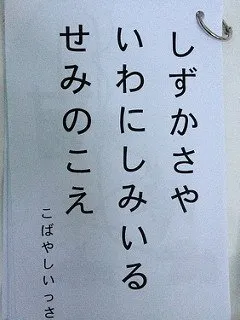 しずかさや
いわにしみいる
せみのこえ
こばやしいっさ